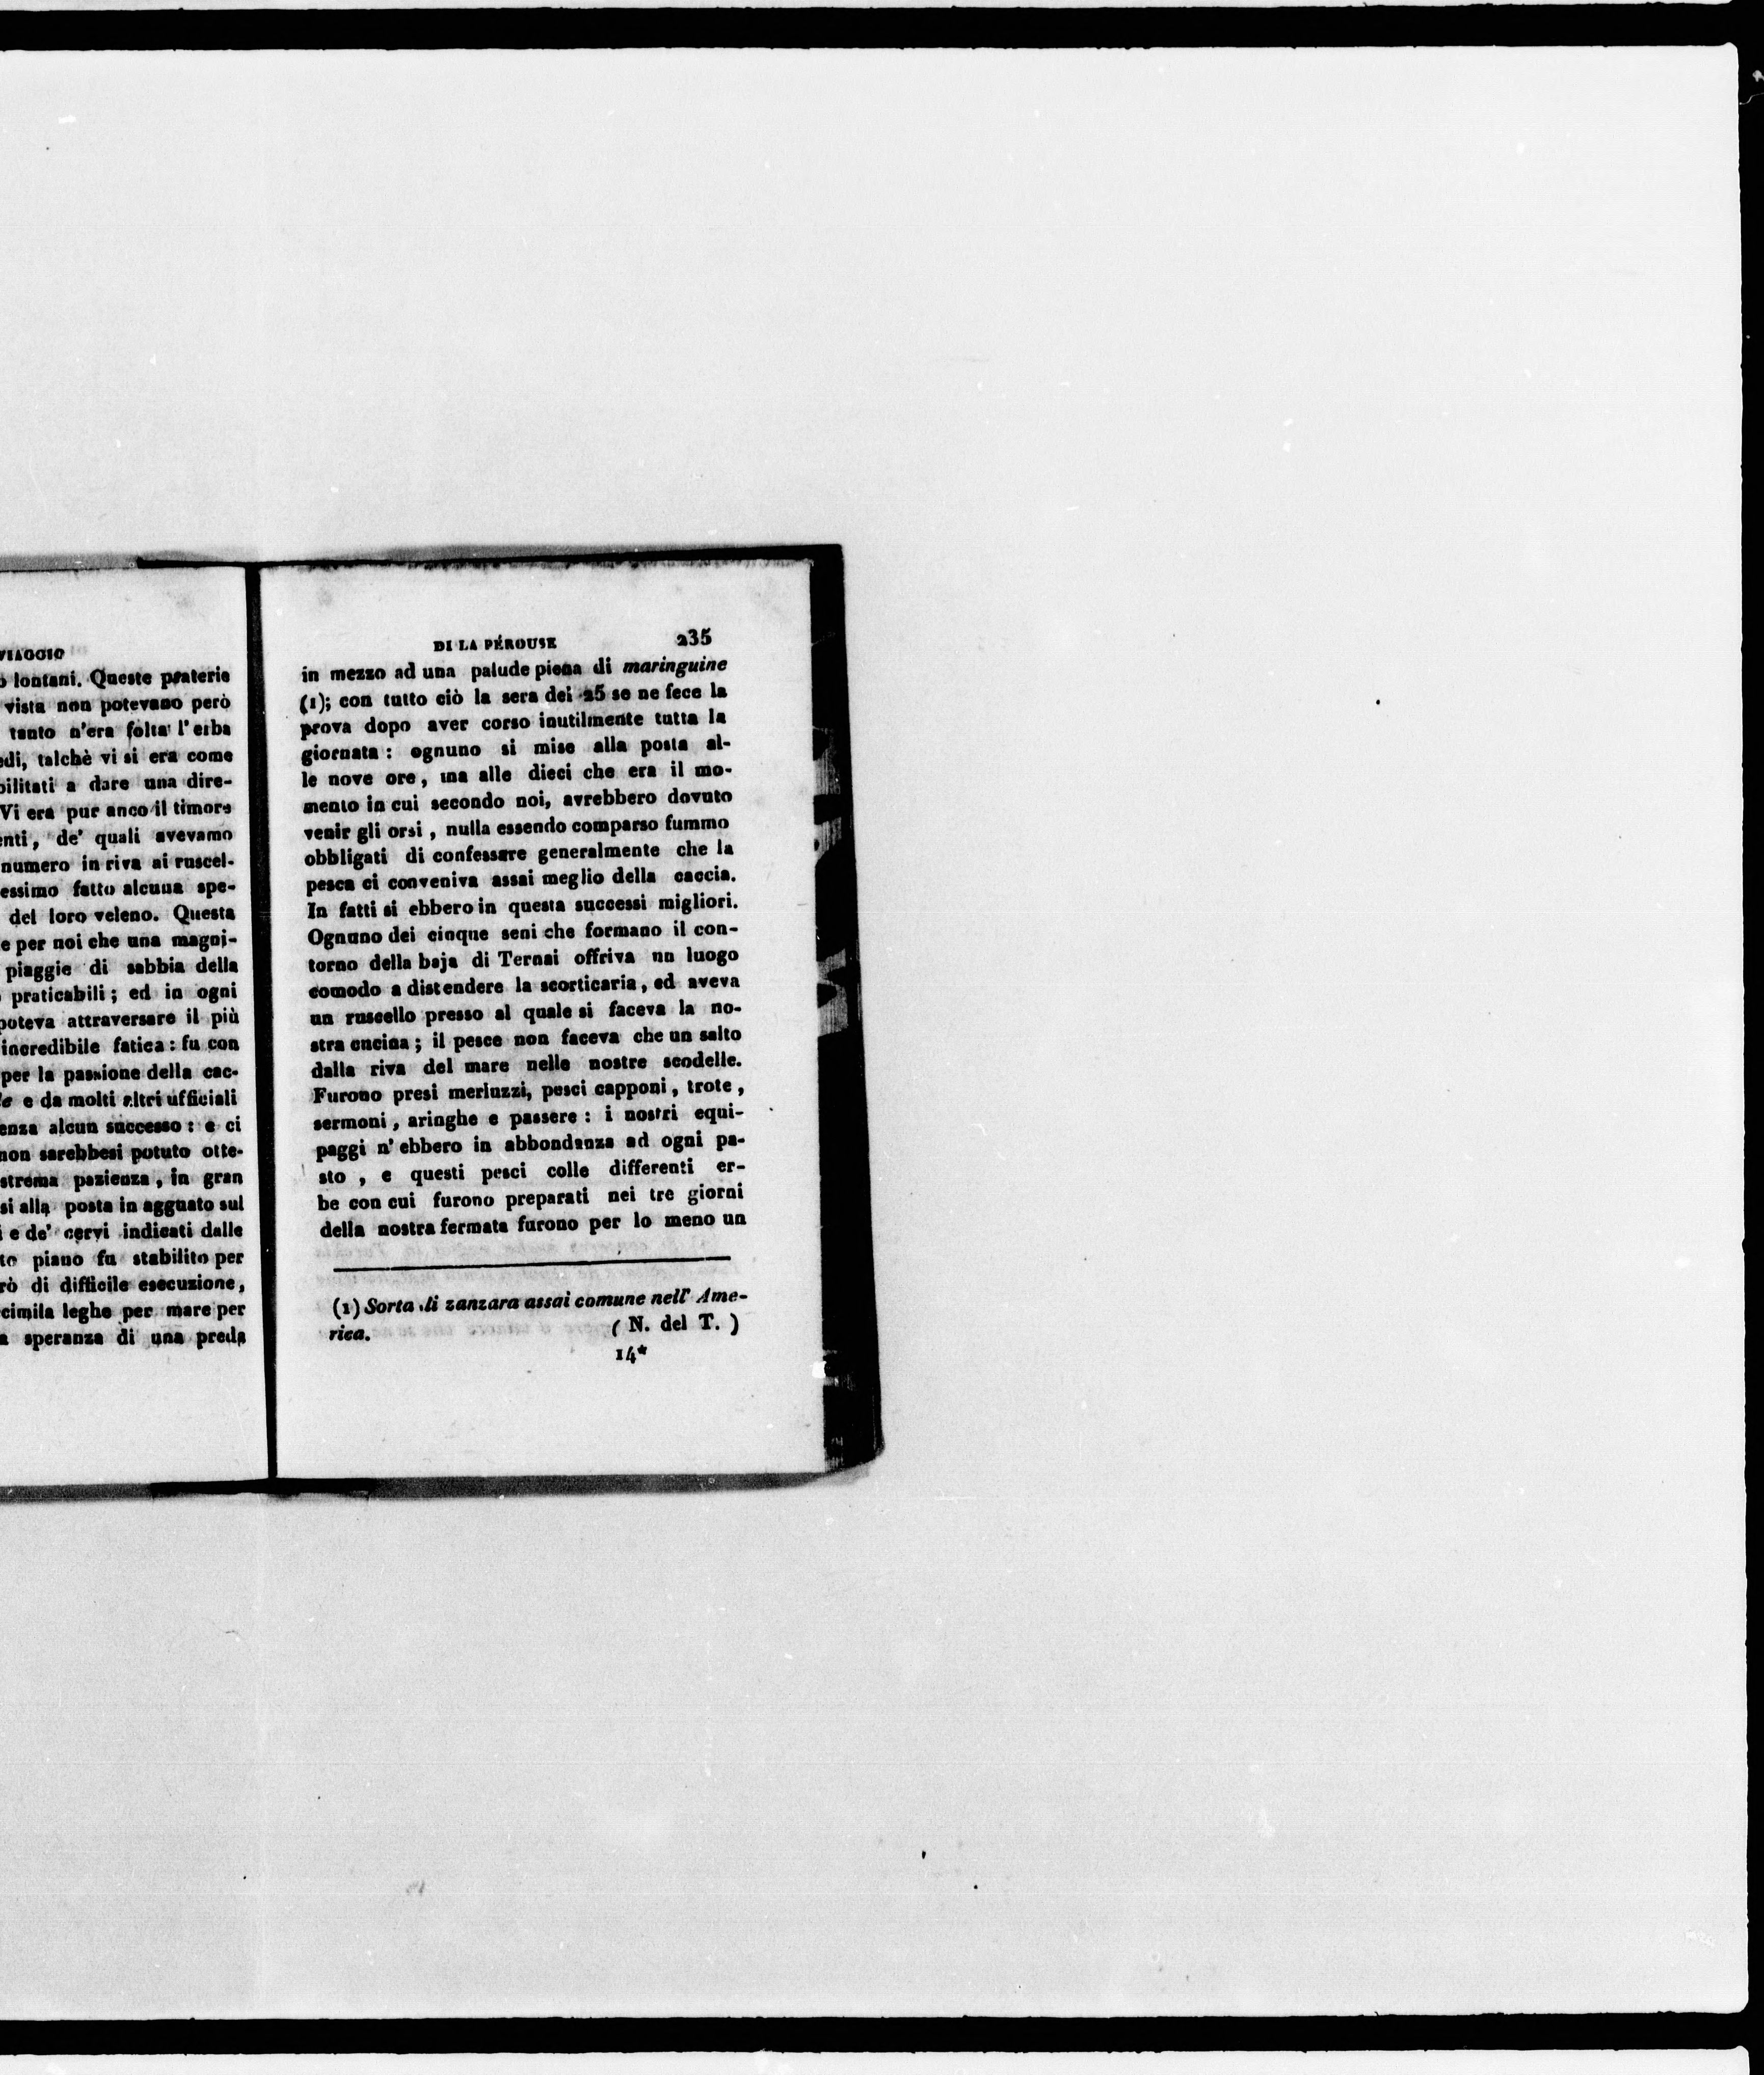 VIAGGIO
lontani. Queste praterie
vista non potevano però
tanto n'era folta l'erba
edi, talchè vi si era come
bilitati a dare una dire-
Vi era pur anco il timore
enti, de' quali avevamo
numero in riva ai ruscel-
essimo fatto alcuna spe-
del loro veleno. Questa
e per noi che una magni-
piaggie di sabbia della
praticabili; ed in ogni
poteva attraversare il più
incredibile fatica: fu con
per la passione della cac-
e da molti altri ufficiali
enza alcun successo: e ci
non sarebbesi potuto otte-
strema pazienza, in gran
si alla posta in agguato sul
i e de' cervi indicati dalle
to piano fu stabilito per
rò di difficile esecuzione,
cimila leghe per mare per
a speranza di una preda
DI LA PÉROUSE 235
in mezzo ad una palude piena di maringuine
(1); con tutto ciò la sera dei 25 se ne fece la
prova dopo aver corso inutilmente tutta la
giornata: ognuno si mise alla posta al-
le nove ore, ma alle dieci che era il mo-
mento in cui secondo noi, avrebbero dovuto
venir gli orsi, nulla essendo comparso fummo
obbligati di confessare generalmente che la
pesca ci conveniva assai meglio della caccia.
In fatti si ebbero in questa successi migliori.
Ognuno dei cinque seni che formano il con-
torno della baja di Ternai offriva un luogo
comodo a distendere la scorticaria, ed aveva
un ruscello presso al quale si faceva la no-
stra cucina; il pesce non faceva che un salto
dalla riva del mare nelle nostre scodelle.
Furono presi merluzzi, pesci capponi, trote,
sermoni, aringhe e passere: i nostri equi-
paggi n'ebbero in abbondanza ad ogni pa-
sto, e questi pesci colle differenti er-
be con cui furono preparati nei tre giorni
della nostra fermata furono per lo meno un
(1) Sorta di zanzara assai comune nell' Ame-
rica. (N. del T.)
14*